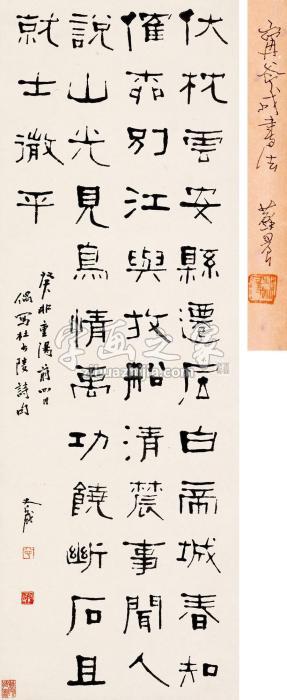 伏枕雲安縣遷居白帝城春知
催柳別江與放船清農事聞人
說山光見鳥情禹功饒斷石且
就土微平
癸卯重陽前四日
偶寫杜少陵詩句
斧成
甯斧成書法 蘇
字画之家